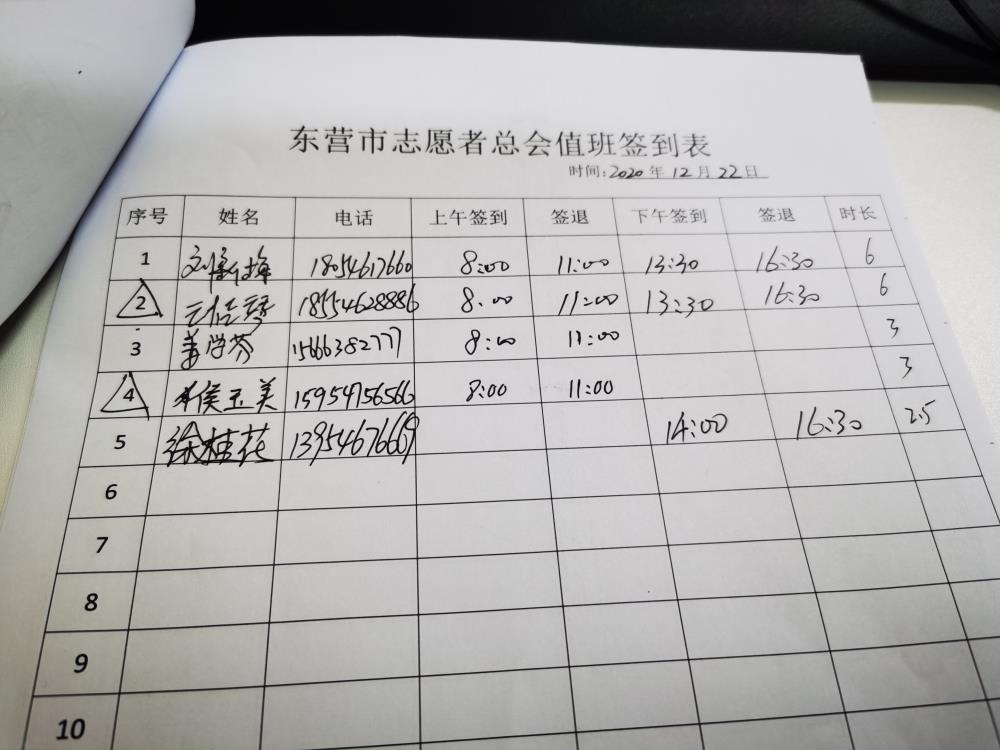 东营市志愿者总会值班签到表
时间:2020年12月22日
序号 姓名 电话 上午签到 签退 下午签到 签退 时长
1 刘 梅 18054617660 8:00 11:00 13:30 16:30 6
2 18554628886 8:00 11:00 13:30 16:30 6
3 姜学芬 15666382777 8:00 11:00 3
4 侯玉美 15954756566 8:00 11:00 3
5 徐桂花 13954676669 14:00 16:30 2.5
6
7
8
9
10